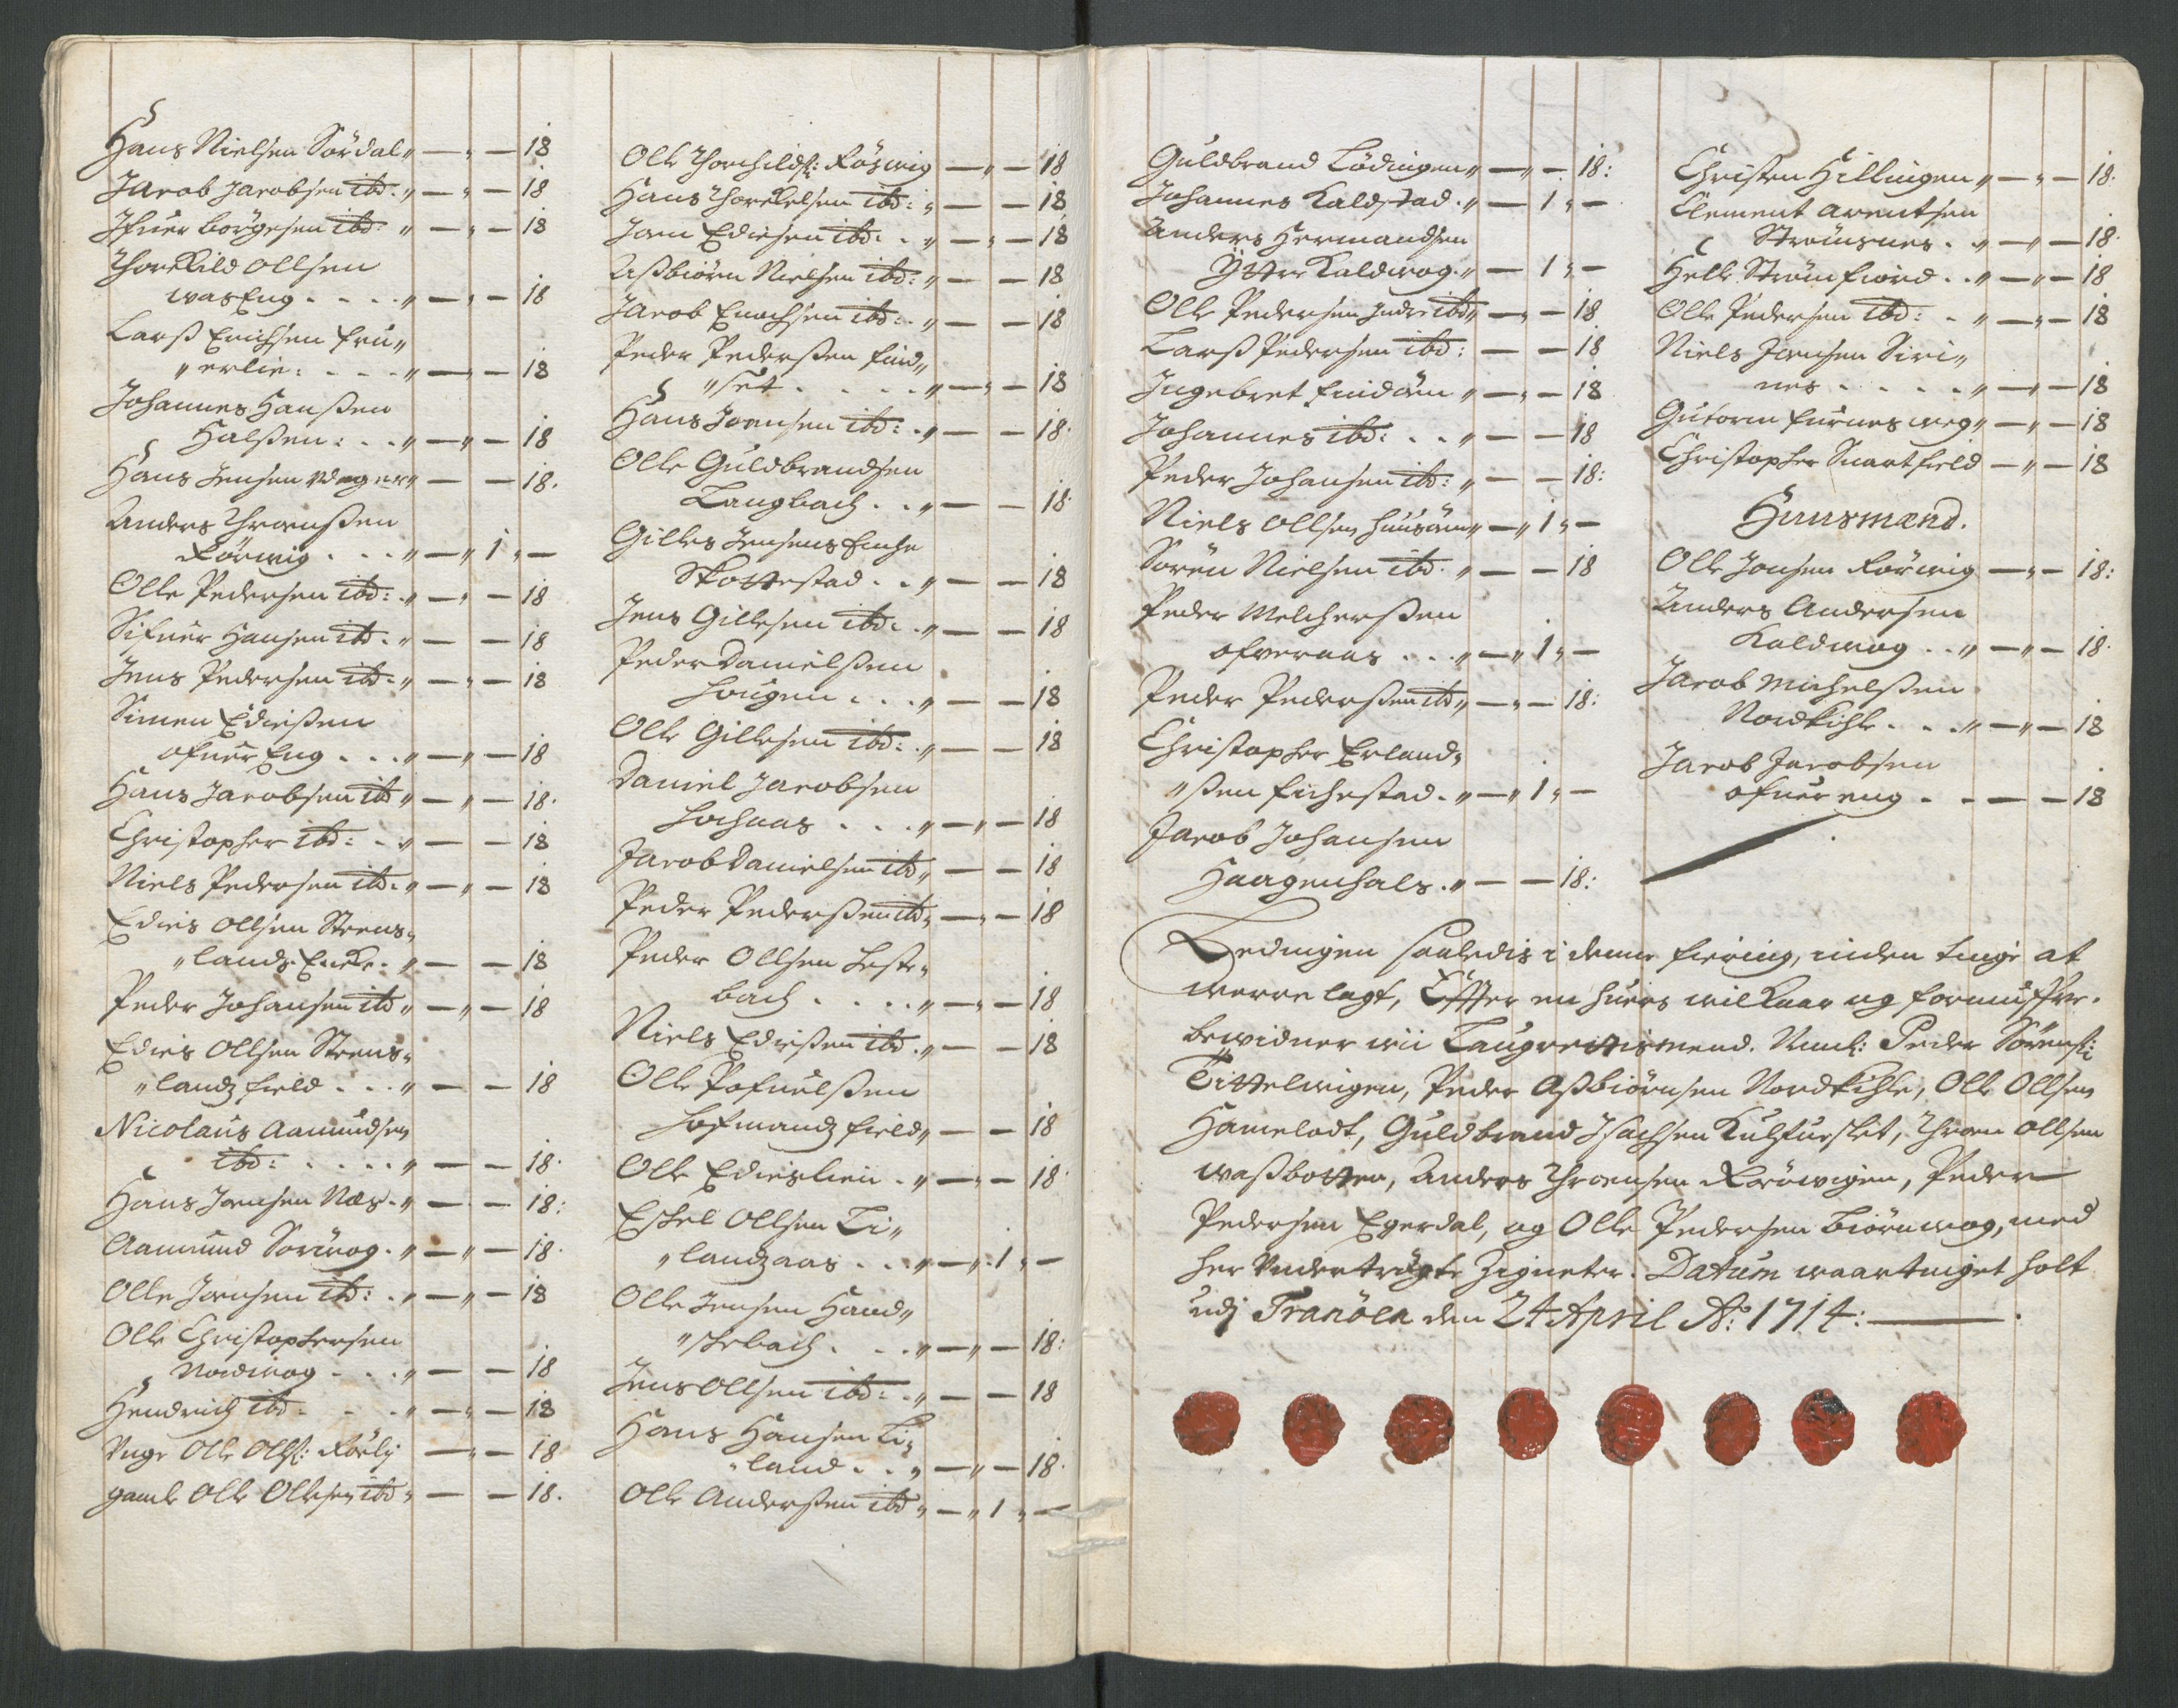 Hans Nielsen Sördal „ — „ — 18
Jacob Jacobsen ibd: „ — „ — 18
Ifuer Börgesen ibd: „ — „ — 18
Thorkild Ollsen
wasEng . . . . „ — „ — 18
Larß Erichsen fru„
„erlie: . . . . „ — „ — 18
Johannes Hanßen
Halßen: . . „ — „ — 18
Hans Jensen „ — — 18.
Anders Thronßen
Rörwig . . . „ — „ 1 „ —
Olle Pedersen ibd: . „ — „ — 18
Sifuer Hansen ibd . „ — — 18
Jens Pedersen ibd . „ — „ — 18
Simen Edisßen
ofuer Eng . . . „ — „ — 18
Hans Jacobsen ibd „ — „ — 18.
Christopher ibd: . „ — — 18
Niels Pedersen ibd . „ — „ — 18
Edies Ollsen Steens„
„lands Encke . „ — — 18
Peder Johansen ibd „ — „ — 18
Edies Ollsen Steens„
„landz field . . . „ — — 18
Nicolaus Aamundsen
ibd: . . . . . „ — — 18.
Hans Jonsen Næs . „ — — 18:
Aamund Sörwog . „ — „ — 18.
Olle Jonsen ibd: . „ — „ — 18
Olle Christophersen
Nordwog . . . „ — — 18
Hendrich ibd: . . „ — „ — 18
Unge Olle Ollß: — „ — 18
gamle Olle Ollesen ibd „ — — 18.
Olle Thorchildß: Röswig — „ — 18
Hans Thorkelsen ibd: „ — — 18
Jon Ediesen ibd: . „ — „ — 18
Aßbiörn Nielsen ibd: „ — — 18
Jacob Enochsen ibd: . „ — — 18
Peder Pederßen find„
„set . . . . . „ — „ — 18
Hans Jonsen ibd: . „ — — 18.
Olle Guldbrandsen
Langbach . . „ — — 18.
Gilles Jensens Encke
Skottestad . . „ — — 18
Jens Gillesen ibd: . „ — — 18
Peder Danielßen
Hougen . . . „ — — 18
Olle Gillesen ibd: . „ — — 18
Daniel Jacobsen
Hochaas . . . „ — „ — 18
Jacob Danielsen ibd „ — — 18
Peder Pederßen ibd „ — „ — 18
Peder Ollsen Heste„
bach . . . . „ — „ — 18
Niels Edisßen ibd . „ — — 18
Olle Pofuelßen
Hofmandz field „ — — 18
Olle Edieslien . „ — „ — 18.
Eskel Ollsen Li„
„landzaas . . . „ — „ 1 „ —
Olle Jensen Hand„
„skebach . . . „ — „ — 18:
Jens Ollsen ibd: . „ — — 18
Hans Hansen Li„
„land . . „ — „ — 18.
Olle Anderßen ibd „ — „ 1 „ —
Guldbrand Lödingen „ — „ — 18:
Johannes Kaldstad . „ — 1 „ —
Anders Hermandsen
Ÿttre Kaldwog . „ — 1 „ —
Olle Pedersen Indre ibd „ — „ — 18
Larß Pedersen ibd: — — 18
Ingebret Findöen „ — „ — 18
Johannes ibd: . . „ — — 18
Peder Johansen ibd: „ — — 18:
Niels Ollsen Huusöen „ — „ 1 „ —
Sören Nielsen ibd . „ — — 18
Peder Melcherßen
ofveraas . . . „ — „ 1 „ —
Peder Pederßen ibd „ — „ — 18:
Christopher Erland„
„ßen Fichestad . „ — „ 1 „ —
Jacob Johansen
Haagenhals . „ — — 18:
Christen Hillingen „ — „ — 18.
Clement Arentsen
Strömsnes . „ — „ — 18.
Helle Strömfiord . . „ — „ — 18
Olle Pedersen ibd: . „ — „ — 18
Niels Jensen Siri„
nes . . . . . „ — „ — 18
Gutorm furneswog „ — „ — 18
Christopher Suartfield — „ — 18
Huusmænd.
Olle Jonsen Rörwig — „ — 18:
Anders Andersen
Kaldwog . . „ — „ — 18.
Jacob Michelßen
Nordkihle . . . „ — „ — 18
Jacob Jacobsen
ofuer eng . . — — 18
Ledingen saaledis i denne fiering, inden tinge at
werre lagt, Effter en huers wilkaar og formuffve.
bewidner wii Laugrettismend. Neml: Peder Sörensß:
Tittelwigen, Peder Aßbiörnsen Nordkihle, Olle Ollsen
Hamelodt, Guldbrand Isachsen Kulfueslet, Thron Ollsen
waßbotten, Anders Thronsen Rörwigen, Peder
Pedersen Egerdal, og Olle Pedersen Biörnwog, med
her undertrögte Zigneter. Datum waartinget holt
udj Tranöen den 24 April Ao: 1714: